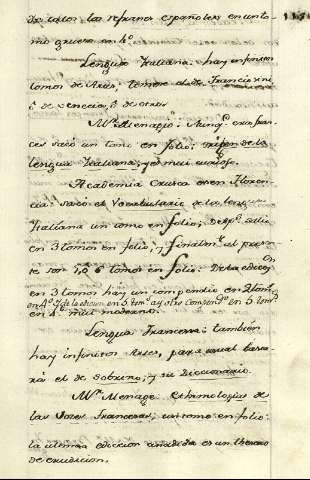 de todos los refranes españoles en un to-
mo grueso en 4º
Lengua Italiana: hay infinitos
tomos de Artes, tomese el de Francisini
ó de Venecia, ó de otros
Mr. Menagio: Aunqe. era fran-
ces sacó un tomo en folio: origen de la
lengua Italiana, y es mui curioso.
Academia Crusca es en Floren-
cia: sacó el Vocabulario de la lengua
Italiana un tomo en folio; Desps. salio
en 3 tomos en folio, y finalmte. al presen-
te son 5, ó 6 tomos en folio. De la edicion
en 3 tomos hay un compendio en 2 tom.
en 4º y de la edicion en 5 tomos ay otro Compendº en 5 toms
en 4º mui moderno.
Lengua Francesa: tambien
hay infinitos Artes, para usual basta-
rá el de Sobrino, y su Diccionario.
Mr. Menage. Ethimologias de
las Voces Francesas, un tomo en folio:
la ultima edicion añadida es un thesoro
de erudicion.